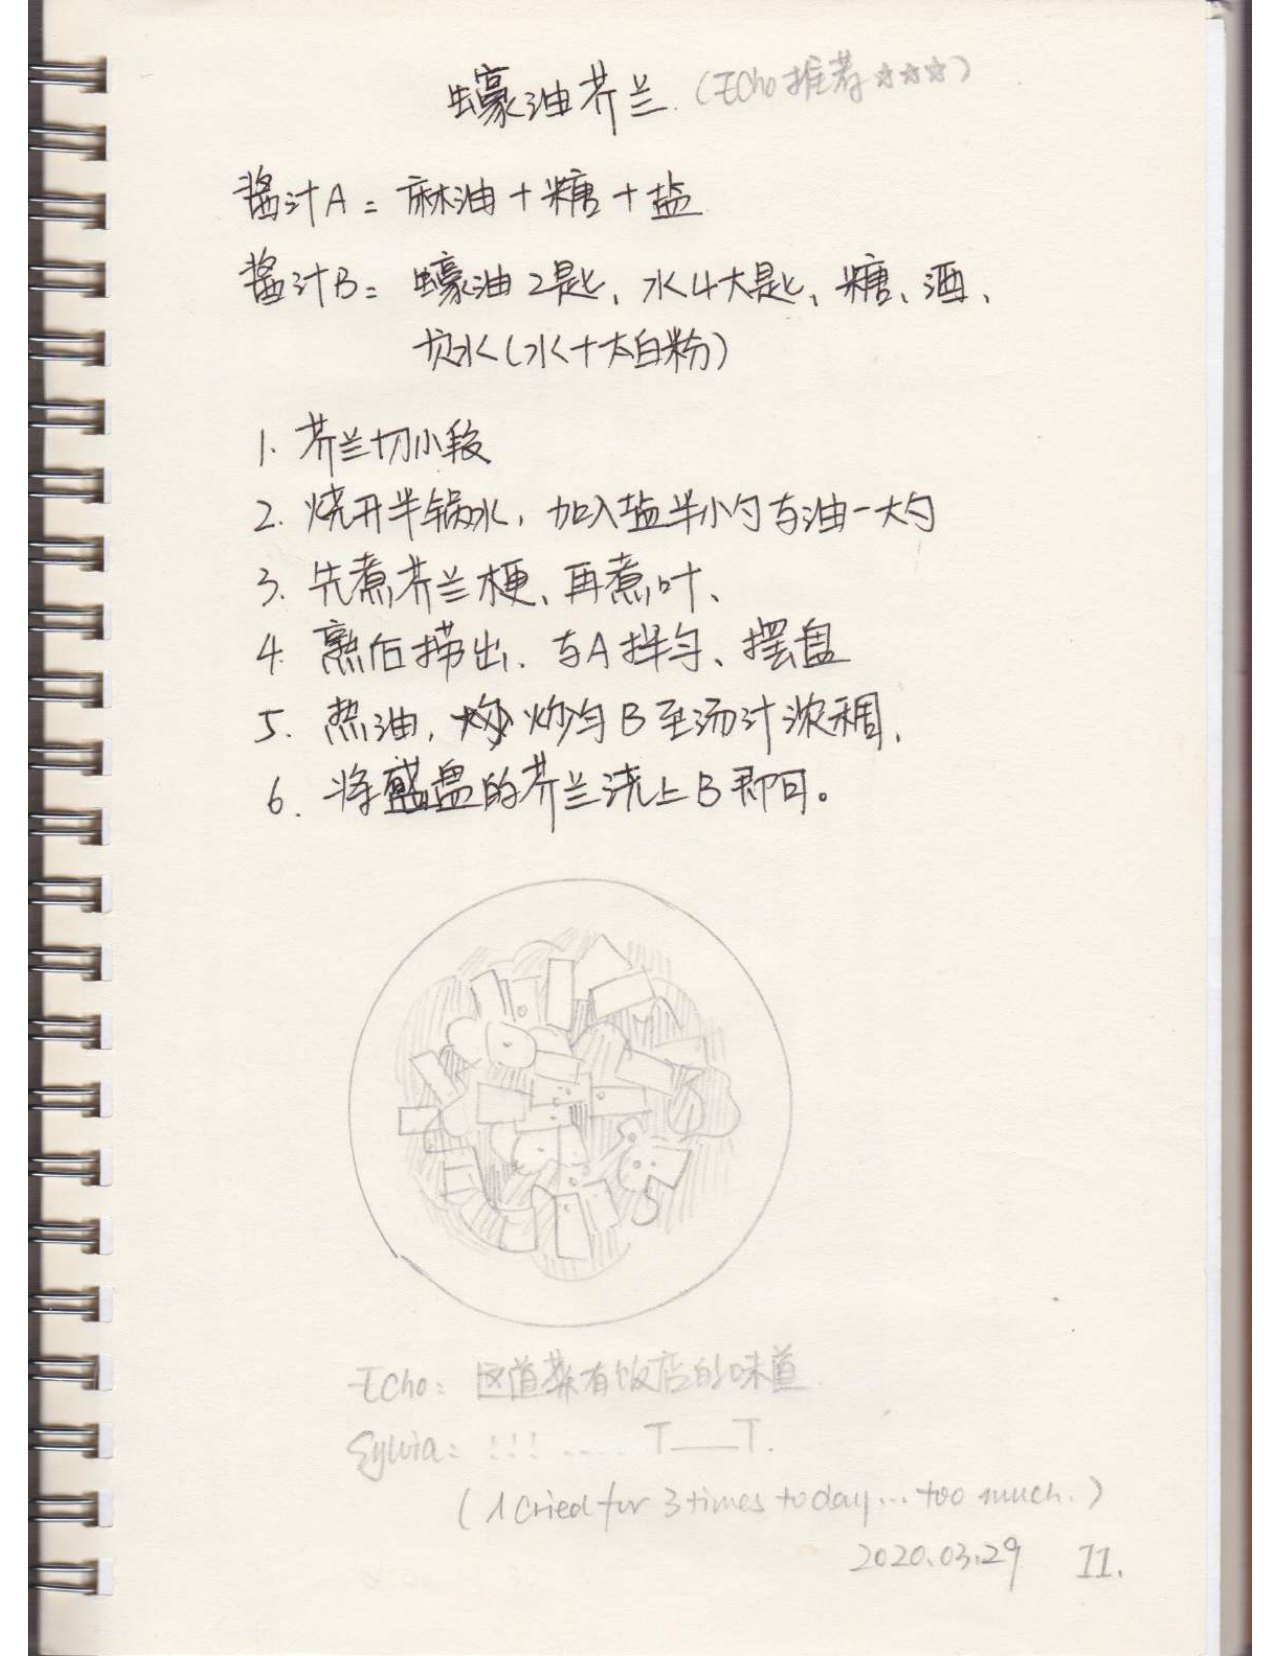 蠔油芥兰 (Echo推荐☆☆☆)
酱汁A = 麻油 + 糖 + 盐
酱汁B = 蠔油2匙、水4大匙、糖、酒、
茨水(水+太白粉)
1. 芥兰切小段
2. 烧开半锅水, 加入盐半小勺与油一大勺
3. 先煮芥兰梗、再煮叶、
4. 熟后捞出、与A拌匀、摆盘
5. 热油, 炒匀B至汤汁浓稠、
6. 将盛盘的芥兰浇上B即可。
Echo: 这道菜有饭店的味道
Sylvia: !!! ..... T___T.
(I cried for 3 times today... too much.)
2020.03.29 11.